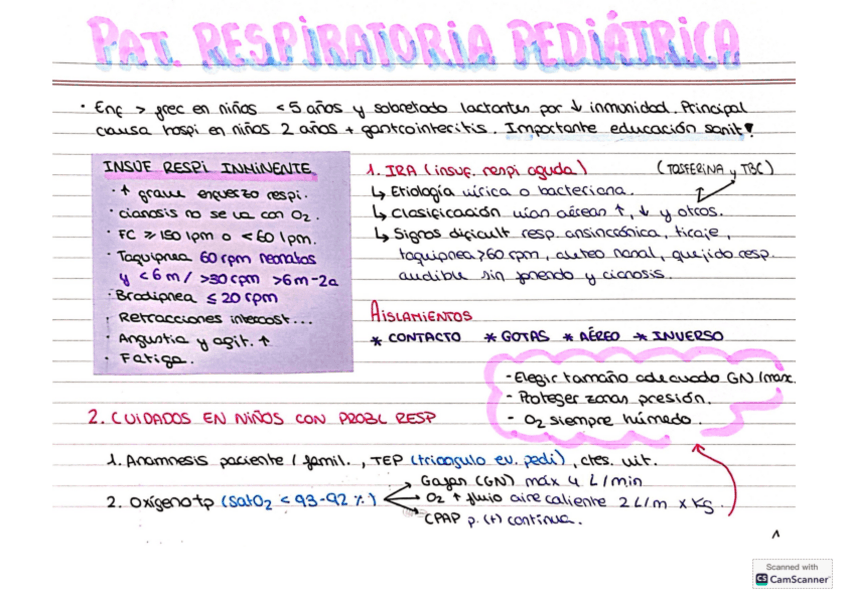 PAT. RESPIRATORIA PEDIÁTRICA
· Enf > frec en niños < 5 años y sobretodo lactantes por ↓ inmunidad. Principal
causa hospi en niños 2 años + gastrointecitis. Importante educación sanit!
INSUF RESPI INMINENTE
· ↑ grave esfuerzo respi.
· cianosis no se va con O2.
· FC ≥ 150 lpm o < 60 lpm.
· Taquipnea 60 rpm neonatos
y < 6 m / > 30 rpm > 6 m - 2a
· Bradipnea ≤ 20 rpm
· Retracciones intercost...
· Angustia y agit. ↑
· Fatiga.
1. IRA (insuf. respi aguda) (TOSFERINA y TBC)
↳ Etiología vírica o bacteriana.
↳ Clasificación vías aéreas ↑, ↓ y otros.
↳ Signos dificult resp. ansincrónica, tiraje,
taquipnea > 60 rpm, aleteo nasal, quejido resp.
audible sin fonendo y cianosis.
AISLAMIENTOS
* CONTACTO * GOTAS * AÉREO * INVERSO
- Elegir tamaño adecuado GN / masc.
- Proteger zonas presión.
- O2 siempre húmedo.
2. CUIDADOS EN NIÑOS CON PROBL RESP
1. Anamnesis paciente / famil., TEP (triangulo ev. pedi), ctes. vit.
2. Oxígenotp (SatO2 < 93-92 %)
Gafas (GN) máx 4 L/min
O2 ↑ flujo aire caliente 2 L/m x Kg.
CPAP p. (+) continua.
1
Scanned with
CS CamScanner